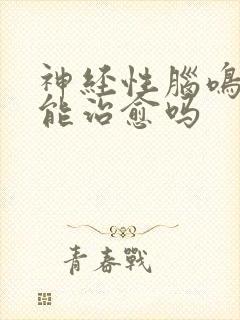 神経性腦鳴
能治愈吗
青春戰